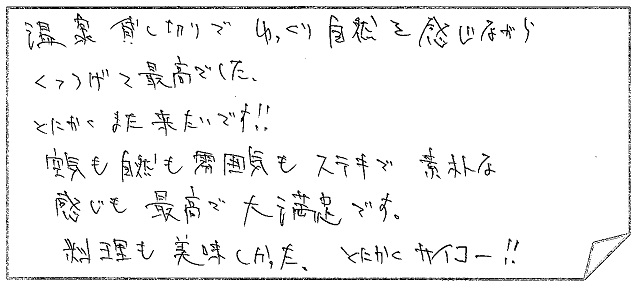 温泉貸し切りでゆっくり自然を感じながら
くつろげて最高でした、
とにかくまた来たいです!!
空気も自然も雰囲気もステキで 素朴な
感じも最高で大満足です。
料理も美味しかった、とにかくサイコー!!